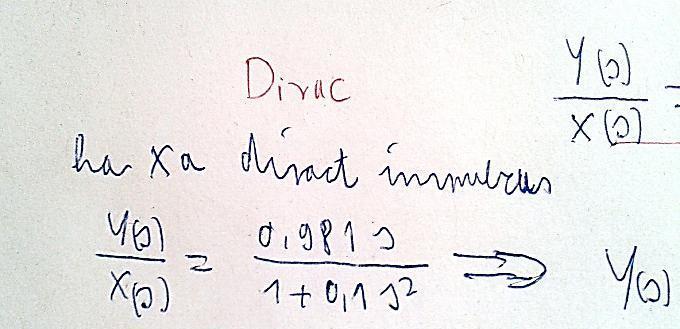 Dirac
Y(s) / X(s) =
ha x a diract impulzus
Y(s) / X(s) = 0,981 s / 1 + 0,1 s² ⇒ Y(s)